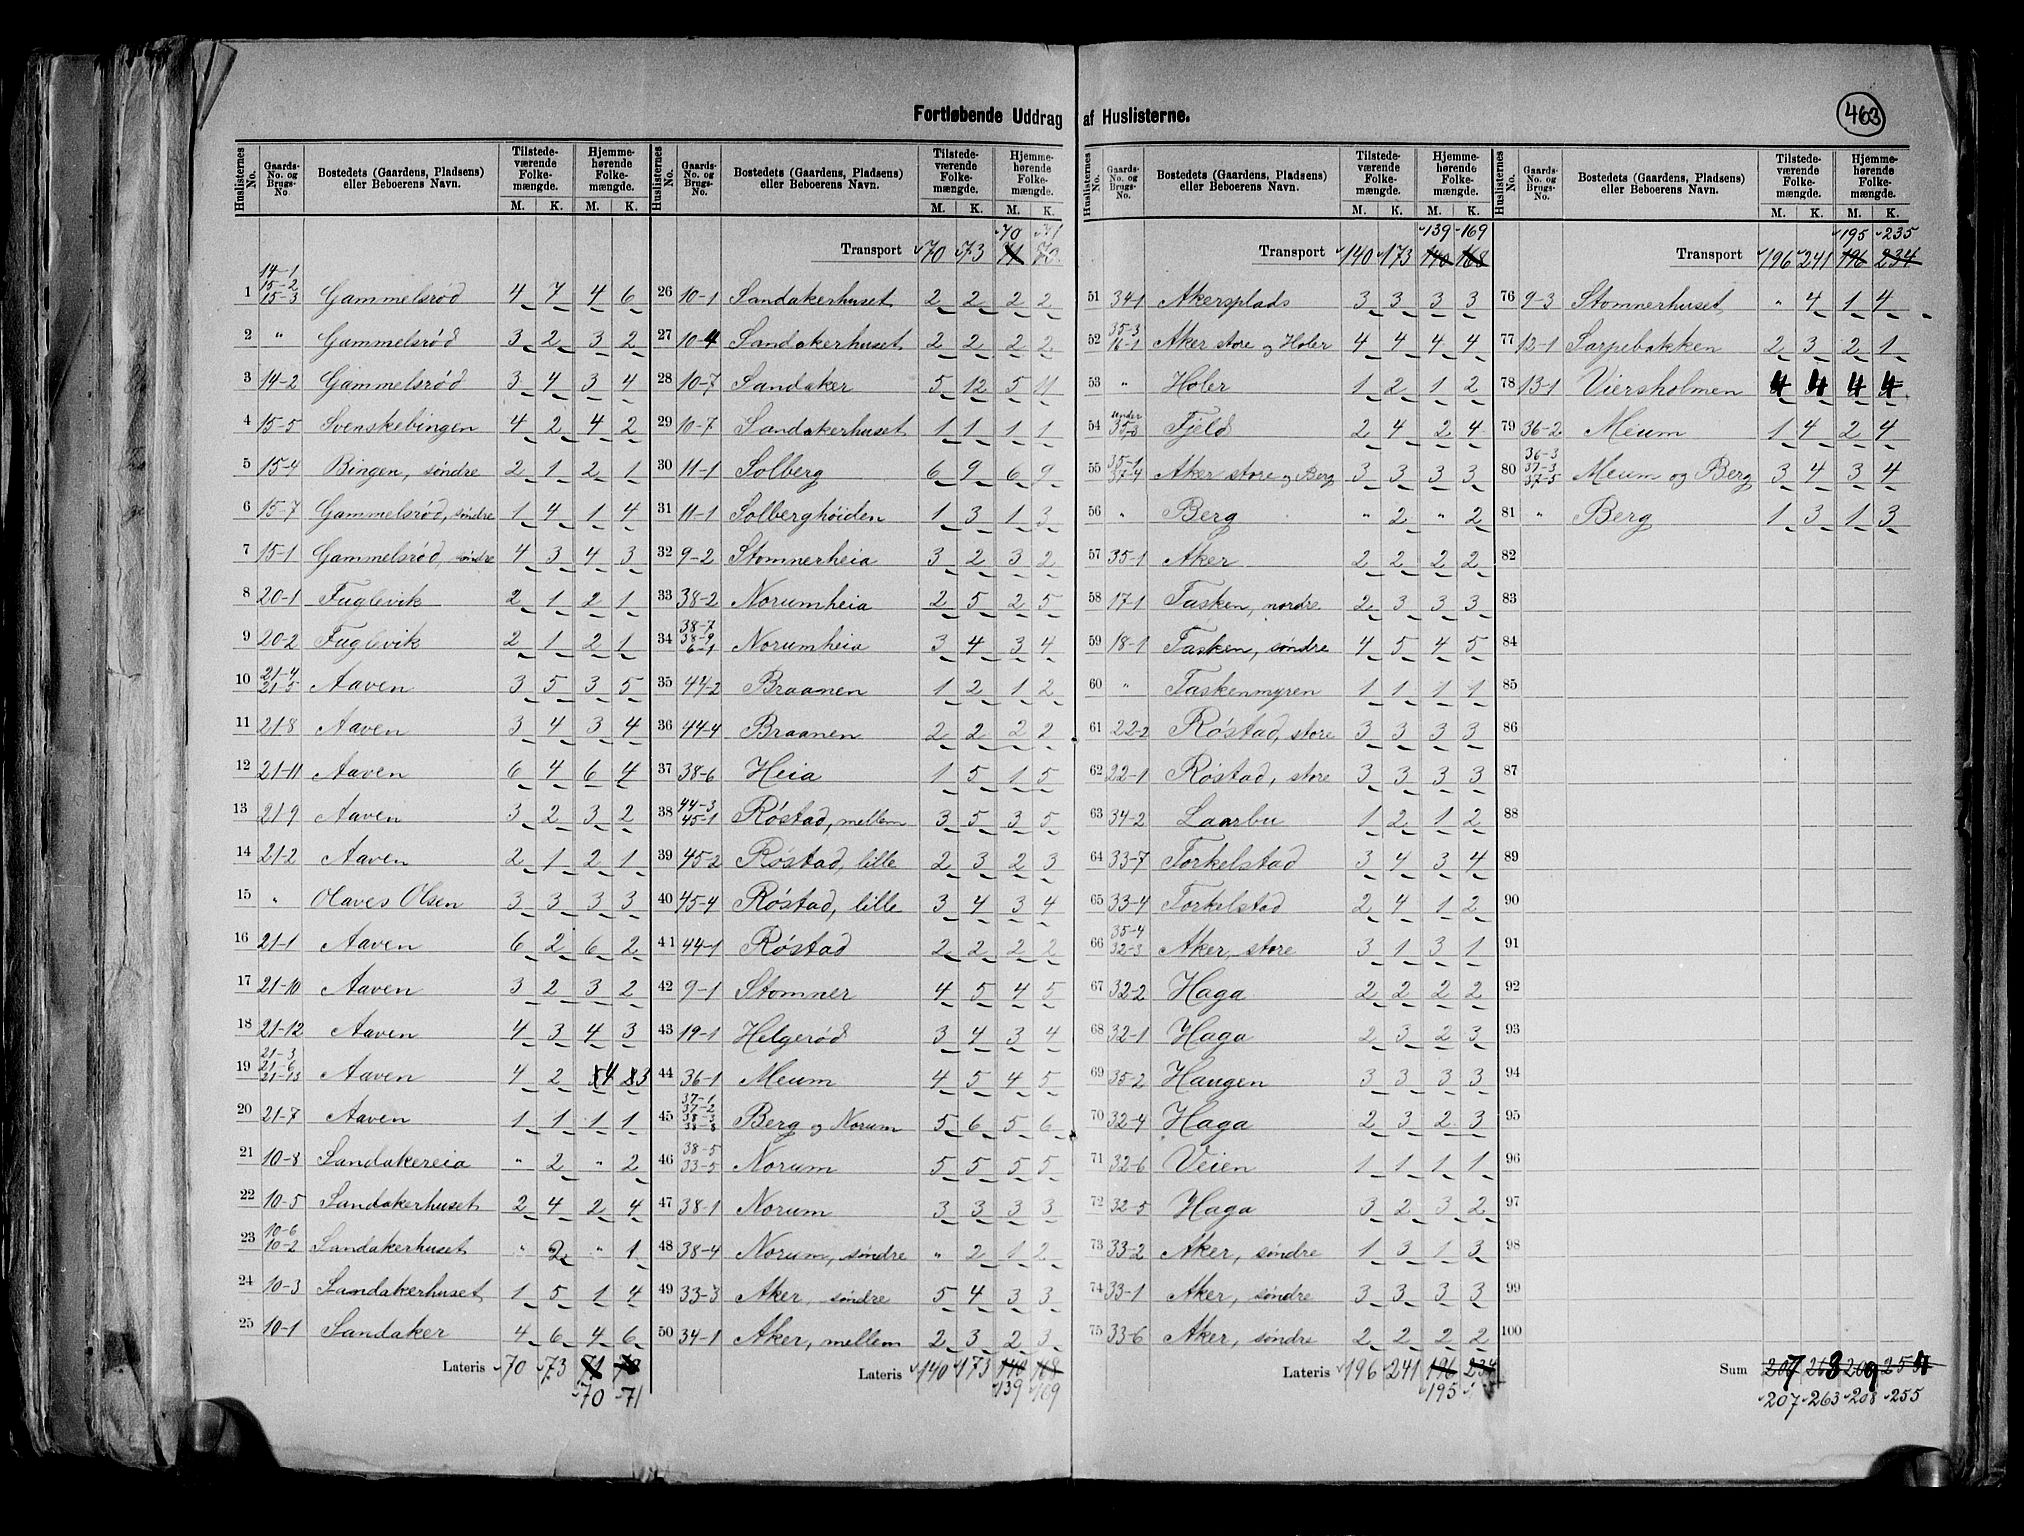 Fortløbende Uddrag af Huslisterne.
463
Huslisternes No. Gaards-No. og Brugs-No. Bostedets (Gaardens, Pladsens) eller Beboerens Navn. Tilstedeværende Folkemængde. M. K. Hjemmehørende Folkemængde. M. K.
1 14-1 15-2 15-3 Gammelsrød 4 7 4 6
2 " Gammelsrød 3 2 3 2
3 14-2 Gammelsrød 3 4 3 4
4 15-5 Svenskebingen 4 2 4 2
5 15-4 Bingen, søndre 2 1 2 1
6 15-7 Gammelsrød, søndre 1 4 1 4
7 15-1 Gammelsrød, søndre 4 3 4 3
8 20-1 Fuglevik 2 1 2 1
9 20-2 Fuglevik 2 1 2 1
10 21-4 21-5 Aaven 3 5 3 5
11 21-8 Aaven 3 4 3 4
12 21-11 Aaven 6 4 6 4
13 21-9 Aaven 3 2 3 2
14 21-2 Aaven 2 1 2 1
15 " Olaves Olsen 3 3 3 3
16 21-1 Aaven 6 2 6 2
17 21-10 Aaven 3 2 3 2
18 21-12 Aaven 4 3 4 3
19 21-3 21-6 21-13 Aaven 4 2 4 3
20 21-7 Aaven 1 1 1 1
21 10-8 Sandakereia " 2 " 2
22 10-5 Sandakerhuset 2 4 2 4
23 10-6 10-2 Sandakerhuset " 2 " 1
24 10-3 Sandakerhuset 1 5 1 4
25 10-1 Sandaker 4 6 4 6
Lateris 70 73 71
70 71
Huslisternes No. Gaards-No. og Brugs-No. Bostedets (Gaardens, Pladsens) eller Beboerens Navn. Tilstedeværende Folkemængde. M. K. Hjemmehørende Folkemængde. M. K.
70 71
Transport 70 73 71
26 10-1 Sandakerhuset 2 2 2 2
27 10-4 Sandakerhuset 2 2 2 2
28 10-7 Sandaker 5 12 5 11
29 10-7 Sandakerhuset 1 1 1 1
30 11-1 Solberg 6 9 6 9
31 11-1 Solberghöiden 1 3 1 3
32 9-2 Stomnerheia 3 2 3 2
33 38-2 Norumheia 2 5 2 5
34 38-7 38-9 6-1 Norumheia 3 4 3 4
35 44-2 Braanen 1 2 1 2
36 44-4 Braanen 2 2 2 2
37 38-6 Heia 1 5 1 5
38 44-3 45-1 Røstad, mellem 3 5 3 5
39 45-2 Røstad, lille 2 3 2 3
40 45-4 Røstad, lille 3 4 3 4
41 44-1 Røstad 2 2 2 2
42 9-1 Stomner 4 5 4 5
43 19-1 Helgerød 3 4 3 4
44 36-1 Meum 4 5 4 5
45 37-1 37-2 38-3 38-8 Berg og Norum 5 6 5 6
46 38-5 33-5 Norum 5 5 5 5
47 38-1 Norum 3 3 3 3
48 38-4 Norum, søndre " 2 1 2
49 33-3 Aker, søndre 5 4 3 3
50 34-1 Aker, mellem 2 3 2 3
Lateris 140 173 140 168
139 169
Huslisternes No. Gaards-No. og Brugs-No. Bostedets (Gaardens, Pladsens) eller Beboerens Navn. Tilstedeværende Folkemængde. M. K. Hjemmehørende Folkemængde. M. K.
139 169
Transport 140 173 140 168
51 34-1 Akersplads 3 3 3 3
52 35-3 16-1 Aker store og Holer 4 4 4 4
53 " Holer 1 2 1 2
54 under 35-3 Fjeld 2 4 2 4
55 35-1 37-4 Aker store og Berg 3 3 3 3
56 " Berg " 2 " 2
57 35-1 Aker 2 2 2 2
58 17-1 Tasken, nordre 2 3 3 3
59 18-1 Tasken, søndre 4 5 4 5
60 " Taskenmyren 1 1 1 1
61 22-2 Røstad, store 3 3 3 3
62 22-1 Røstad, store 3 3 3 3
63 34-2 Laarbu 1 2 1 2
64 33-7 Torkelstad 3 4 3 4
65 33-4 Torkelstad 2 4 1 2
66 35-4 32-3 Aker, store 3 1 3 1
67 32-2 Haga 2 2 2 2
68 32-1 Haga 2 3 2 3
69 35-2 Haugen 3 3 3 3
70 32-4 Haga 2 3 2 3
71 32-6 Veien 1 1 1 1
72 32-5 Haga 3 2 3 2
73 33-2 Aker, søndre 1 3 1 3
74 33-1 Aker, søndre 3 3 3 3
75 33-6 Aker, søndre 2 2 2 2
Lateris 196 241 196 234
195
Huslisternes No. Gaards-No. og Brugs-No. Bostedets (Gaardens, Pladsens) eller Beboerens Navn. Tilstedeværende Folkemængde. M. K. Hjemmehørende Folkemængde. M. K.
195 235
Transport 196 241 196 234
76 9-3 Stomnerhuset " 4 1 4
77 12-1 Sarpebakken 2 3 2 1
78 13-1 Viersholmen 4 4 4 4
79 36-2 Meum 1 4 2 4
80 36-3 37-3 37-5 Meum og Berg 3 4 3 4
81 " Berg 1 3 1 3
82
83
84
85
86
87
88
89
90
91
92
93
94
95
96
97
98
99
100
Sum 207 263 209 254
207 263 208 255